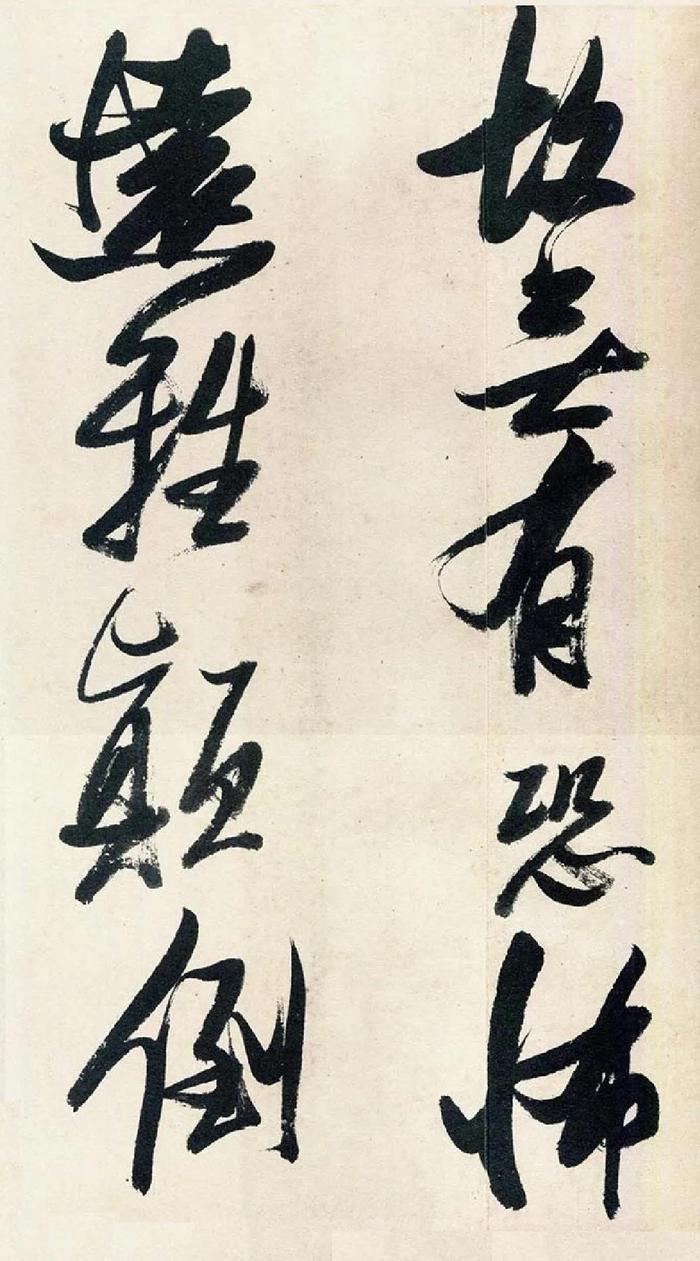 故無有恐怖
遠離顛倒